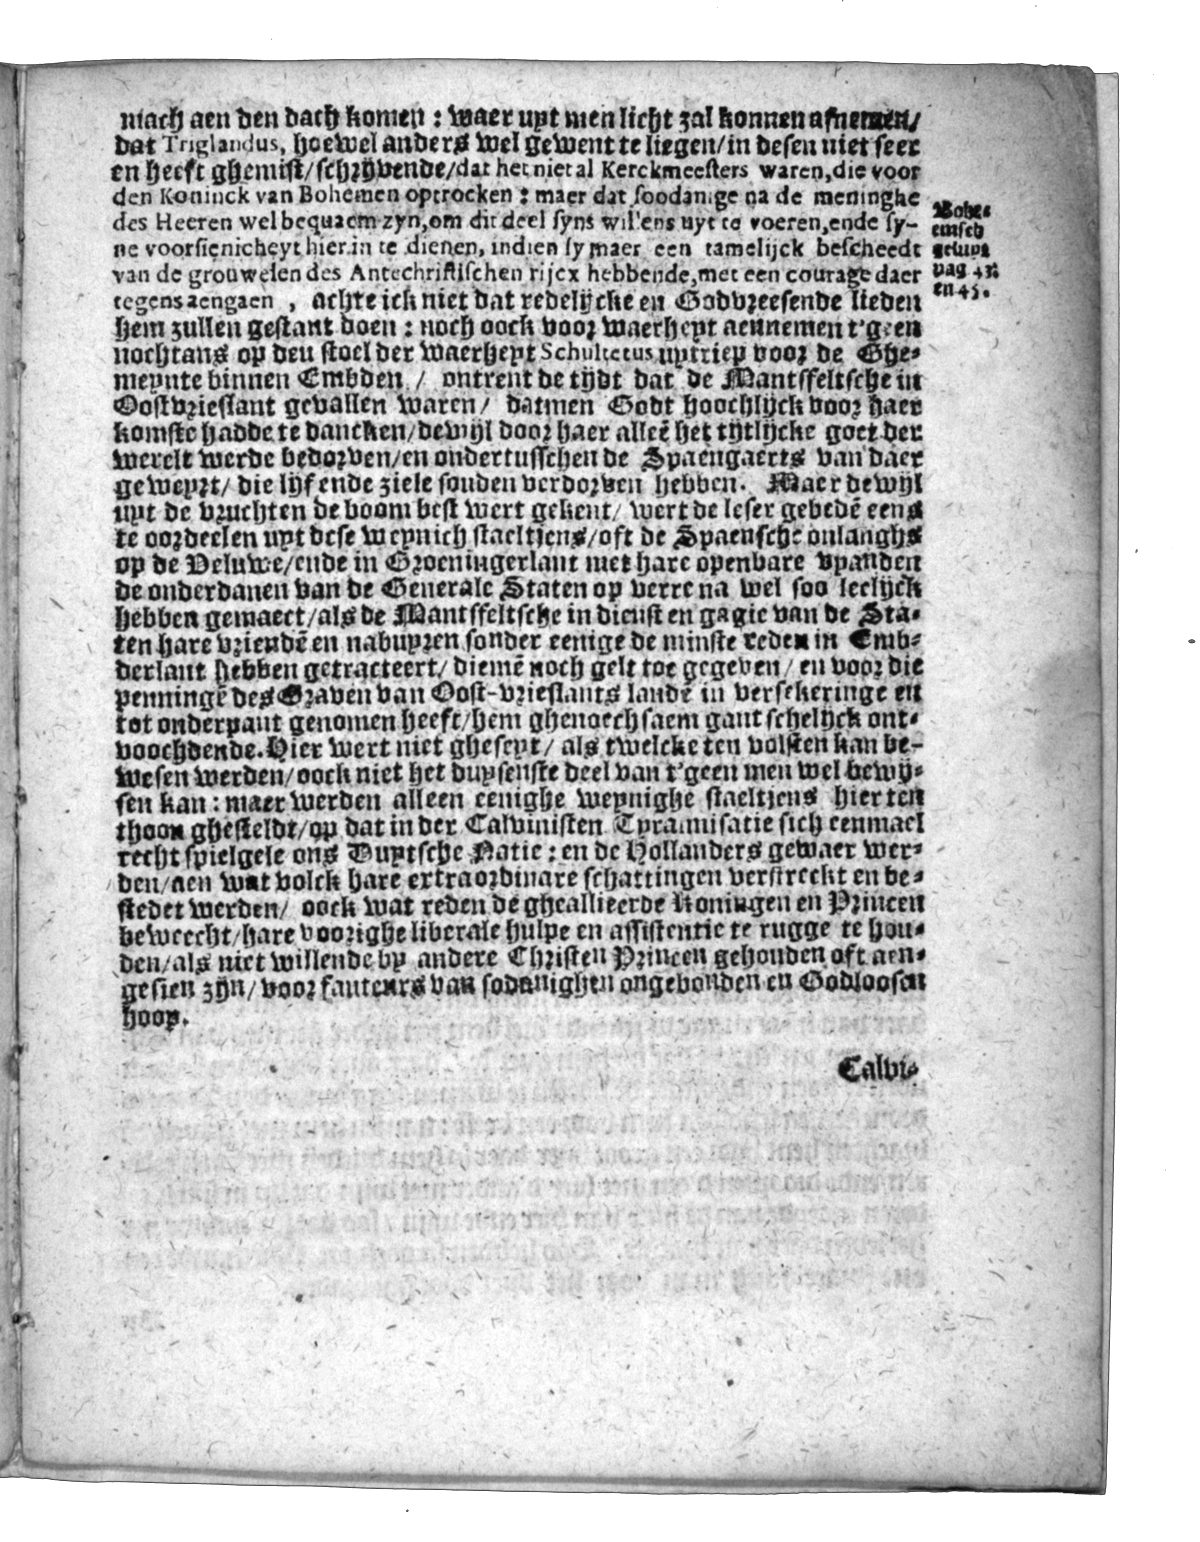 mach aen den dach komen : waer uyt men licht zal konnen afnemen/
dat Triglandus, hoewel anders wel gewent te liegen/in desen niet seer
en heeft ghemist/schrijvende/dat het niet al Kerckmeesters waren,die voor
den Koninck van Bohemen optrocken : maer dat soodanige na de meninghe
des Heeren wel bequaem zyn,om dit deel syns wil'ens uyt te voeren,ende sy-
ne voorsienicheyt hier in te dienen, indien sy maer een tamelijck bescheedt
van de grouwelen des Antechristischen rijcx hebbende,met een courage daer
tegens aengaen , achte ick niet dat redelijcke en Godvreesende lieden
hem zullen gestant doen : noch oock voor waerheyt aennemen t'geen
nochtans op den stoel der waerheyt Schultetus uytriep voor de Ghe-
meynte binnen Embden / ontrent de tijdt dat de Mantsfeltsche in
Oostvrieslant gevallen waren/ datmen Godt hoochlijck voor haer
komste hadde te dancken/dewijl door haer alleē het tijtlijcke goet der
werelt werde bedorven/en ondertusschen de Spaengaerts van daer
geweyrt/ die lijf ende ziele souden verdorven hebben. Maer dewijl
uyt de vruchten de boom best wert gekent/ wert de leser gebedē eens
te oordeelen uyt dese weynich staeltjens/oft de Spaensche onlanghs
op de Veluwe/ende in Groeningerlant met hare openbare vyanden
de onderdanen van de Generale Staten op verre na wel soo leelijck
hebben gemaect/als de Mantsfeltsche in dienst en gagie van de Sta-
ten hare vriendē en nabuyren sonder eenige de minste reden in Emb-
derlant hebben getracteert/ diemē noch gelt toe gegeven/ en voor die
penningē des Graven van Oost-vrieslants landē in versekeringe en
tot onderpant genomen heeft/hem ghenoechsaem gantschelijck ont-
voochdende. Hier wert niet gheseyt/ als twelcke ten volsten kan be-
wesen werden/oock niet het duysenste deel van t'geen men wel bewij-
sen kan : maer werden alleen eenighe weynighe staeltjens hier ten
thoon ghesteldt/op dat in der Calvinisten Tyrannisatie sich eenmael
recht spielgele ons Duytsche Natie : en de Hollanders gewaer wer-
den/aen wat volck hare extraordinare schattingen verstreckt en be-
stedet werden/ oock wat reden de gheallieerde Koningen en Princen
beweecht/hare voorighe liberale hulpe en assistentie te rugge te hou-
den/als niet willende by andere Christen Princen gehouden oft aen-
gesien zijn/ voor fauteurs van sodanighen ongebonden en Godloosen
hoop.
Bohe-
emsch
geluyt
pag 43
en 45.
Calvi-